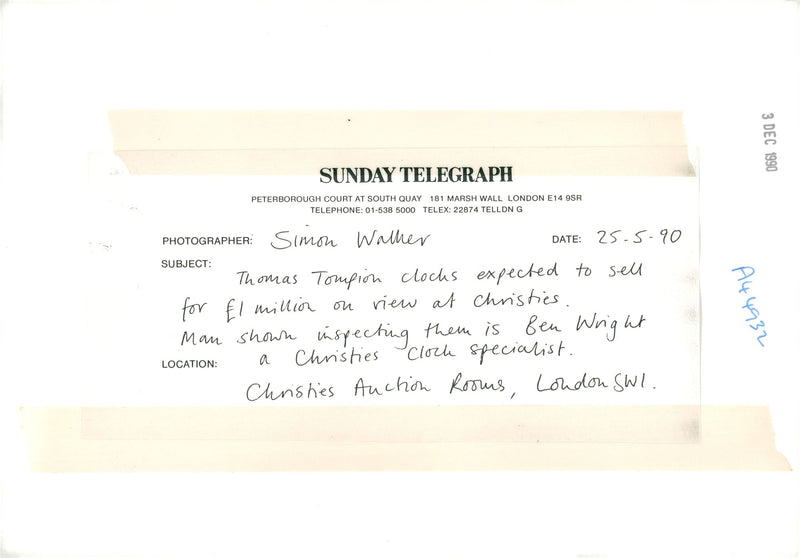 SUNDAY TELEGRAPH
PETERBOROUGH COURT AT SOUTH QUAY 181 MARSH WALL LONDON E14 9SR
TELEPHONE: 01-538 5000 TELEX: 22874 TELLDN G
PHOTOGRAPHER: Simon Walker DATE: 25-5-90
SUBJECT:
Thomas Tompion clocks expected to sell
for £1 million on view at Christies.
Man shown inspecting them is Ben Wright
a Christies Clock specialist.
LOCATION:
Christies Auction Rooms, London SW1.
3 DEC 1990
A44932